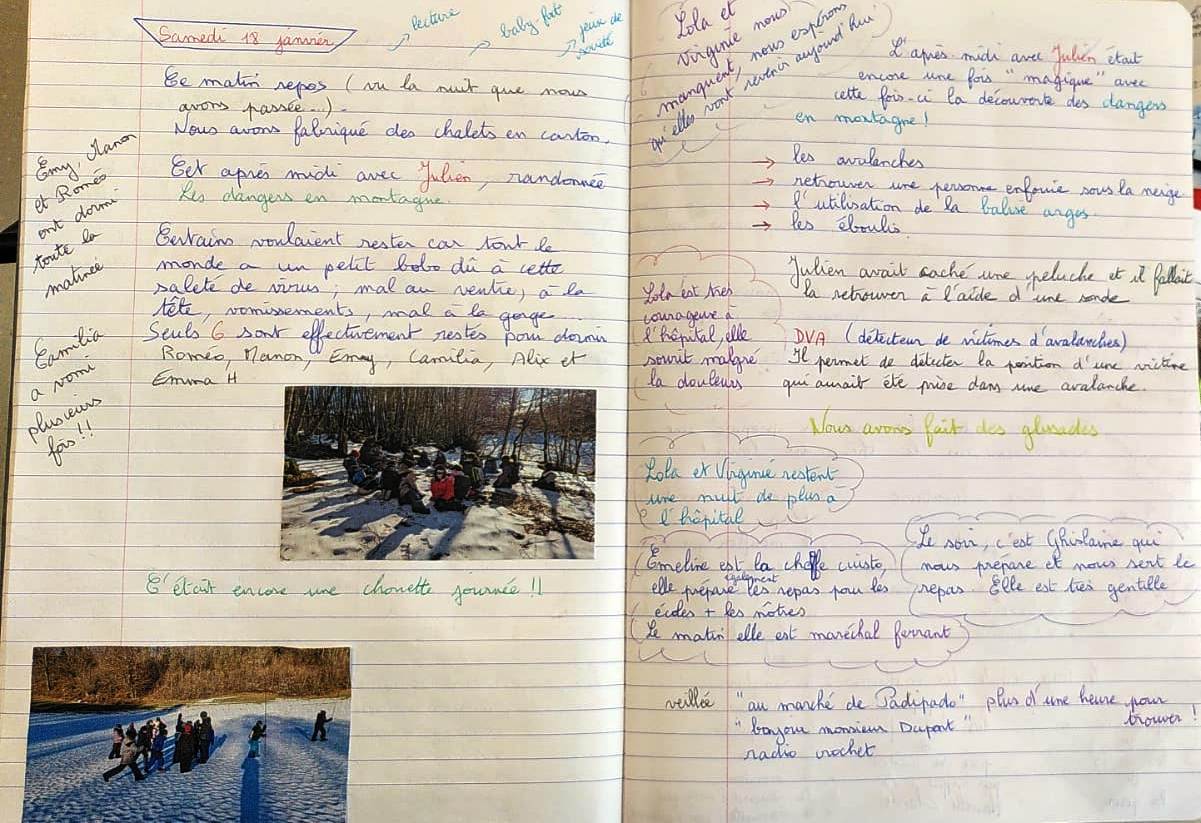 Samedi 18 janvier
lecture
baby-foot
jeux de
société
Ce matin repos (vu la nuit que nous
avons passée...).
Nous avons fabriqué des chalets en carton.
Cet après midi avec Julien, randonnée
Les dangers en montagne.
Certains voulaient rester car tout le
monde a un petit bobo dû à cette
saleté de virus ; mal au ventre, à la
tête, vomissements, mal à la gorge...
Seuls 6 sont effectivement restés pour dormir
Roméo, Manon, Emmy, Camilia, Alix et
Emma H
Emy, Manon
et Roméo
ont dormi
toute la
matinée
Camilia
a vomi
plusieurs
fois !!
C'était encore une chouette journée !!
Lola et
Virginie nous
manquent, nous espérons
qu'elles vont revenir aujourd'hui
L'après midi avec Julien était
encore une fois "magique" avec
cette fois-ci la découverte des dangers
en montagne !
→ les avalanches
→ retrouver une personne enfouie sous la neige
→ l'utilisation de la balise arges.
→ les éboulis.
Julien avait caché une peluche et il fallait
la retrouver à l'aide d'une sonde
Lola est très
courageuse à
l'hôpital, elle
sourit malgré
la douleurs
DVA (détecteur de victimes d'avalanches)
Il permet de détecter la position d'une victime
qui aurait été prise dans une avalanche.
Nous avons fait des glissades
Lola et Virginie restent
une nuit de plus à
l'hôpital
Emeline est la cheffe cuisto,
elle prépare également les repas pour les
écoles + les nôtres
Le matin elle est maréchal ferrant
Le soir, c'est Ghislaine qui
nous prépare et nous sert le
repas. Elle est très gentille
veillée "au marché de Padipado" plus d'une heure pour
trouver !
"bonjour monsieur Dupont"
radio crochet